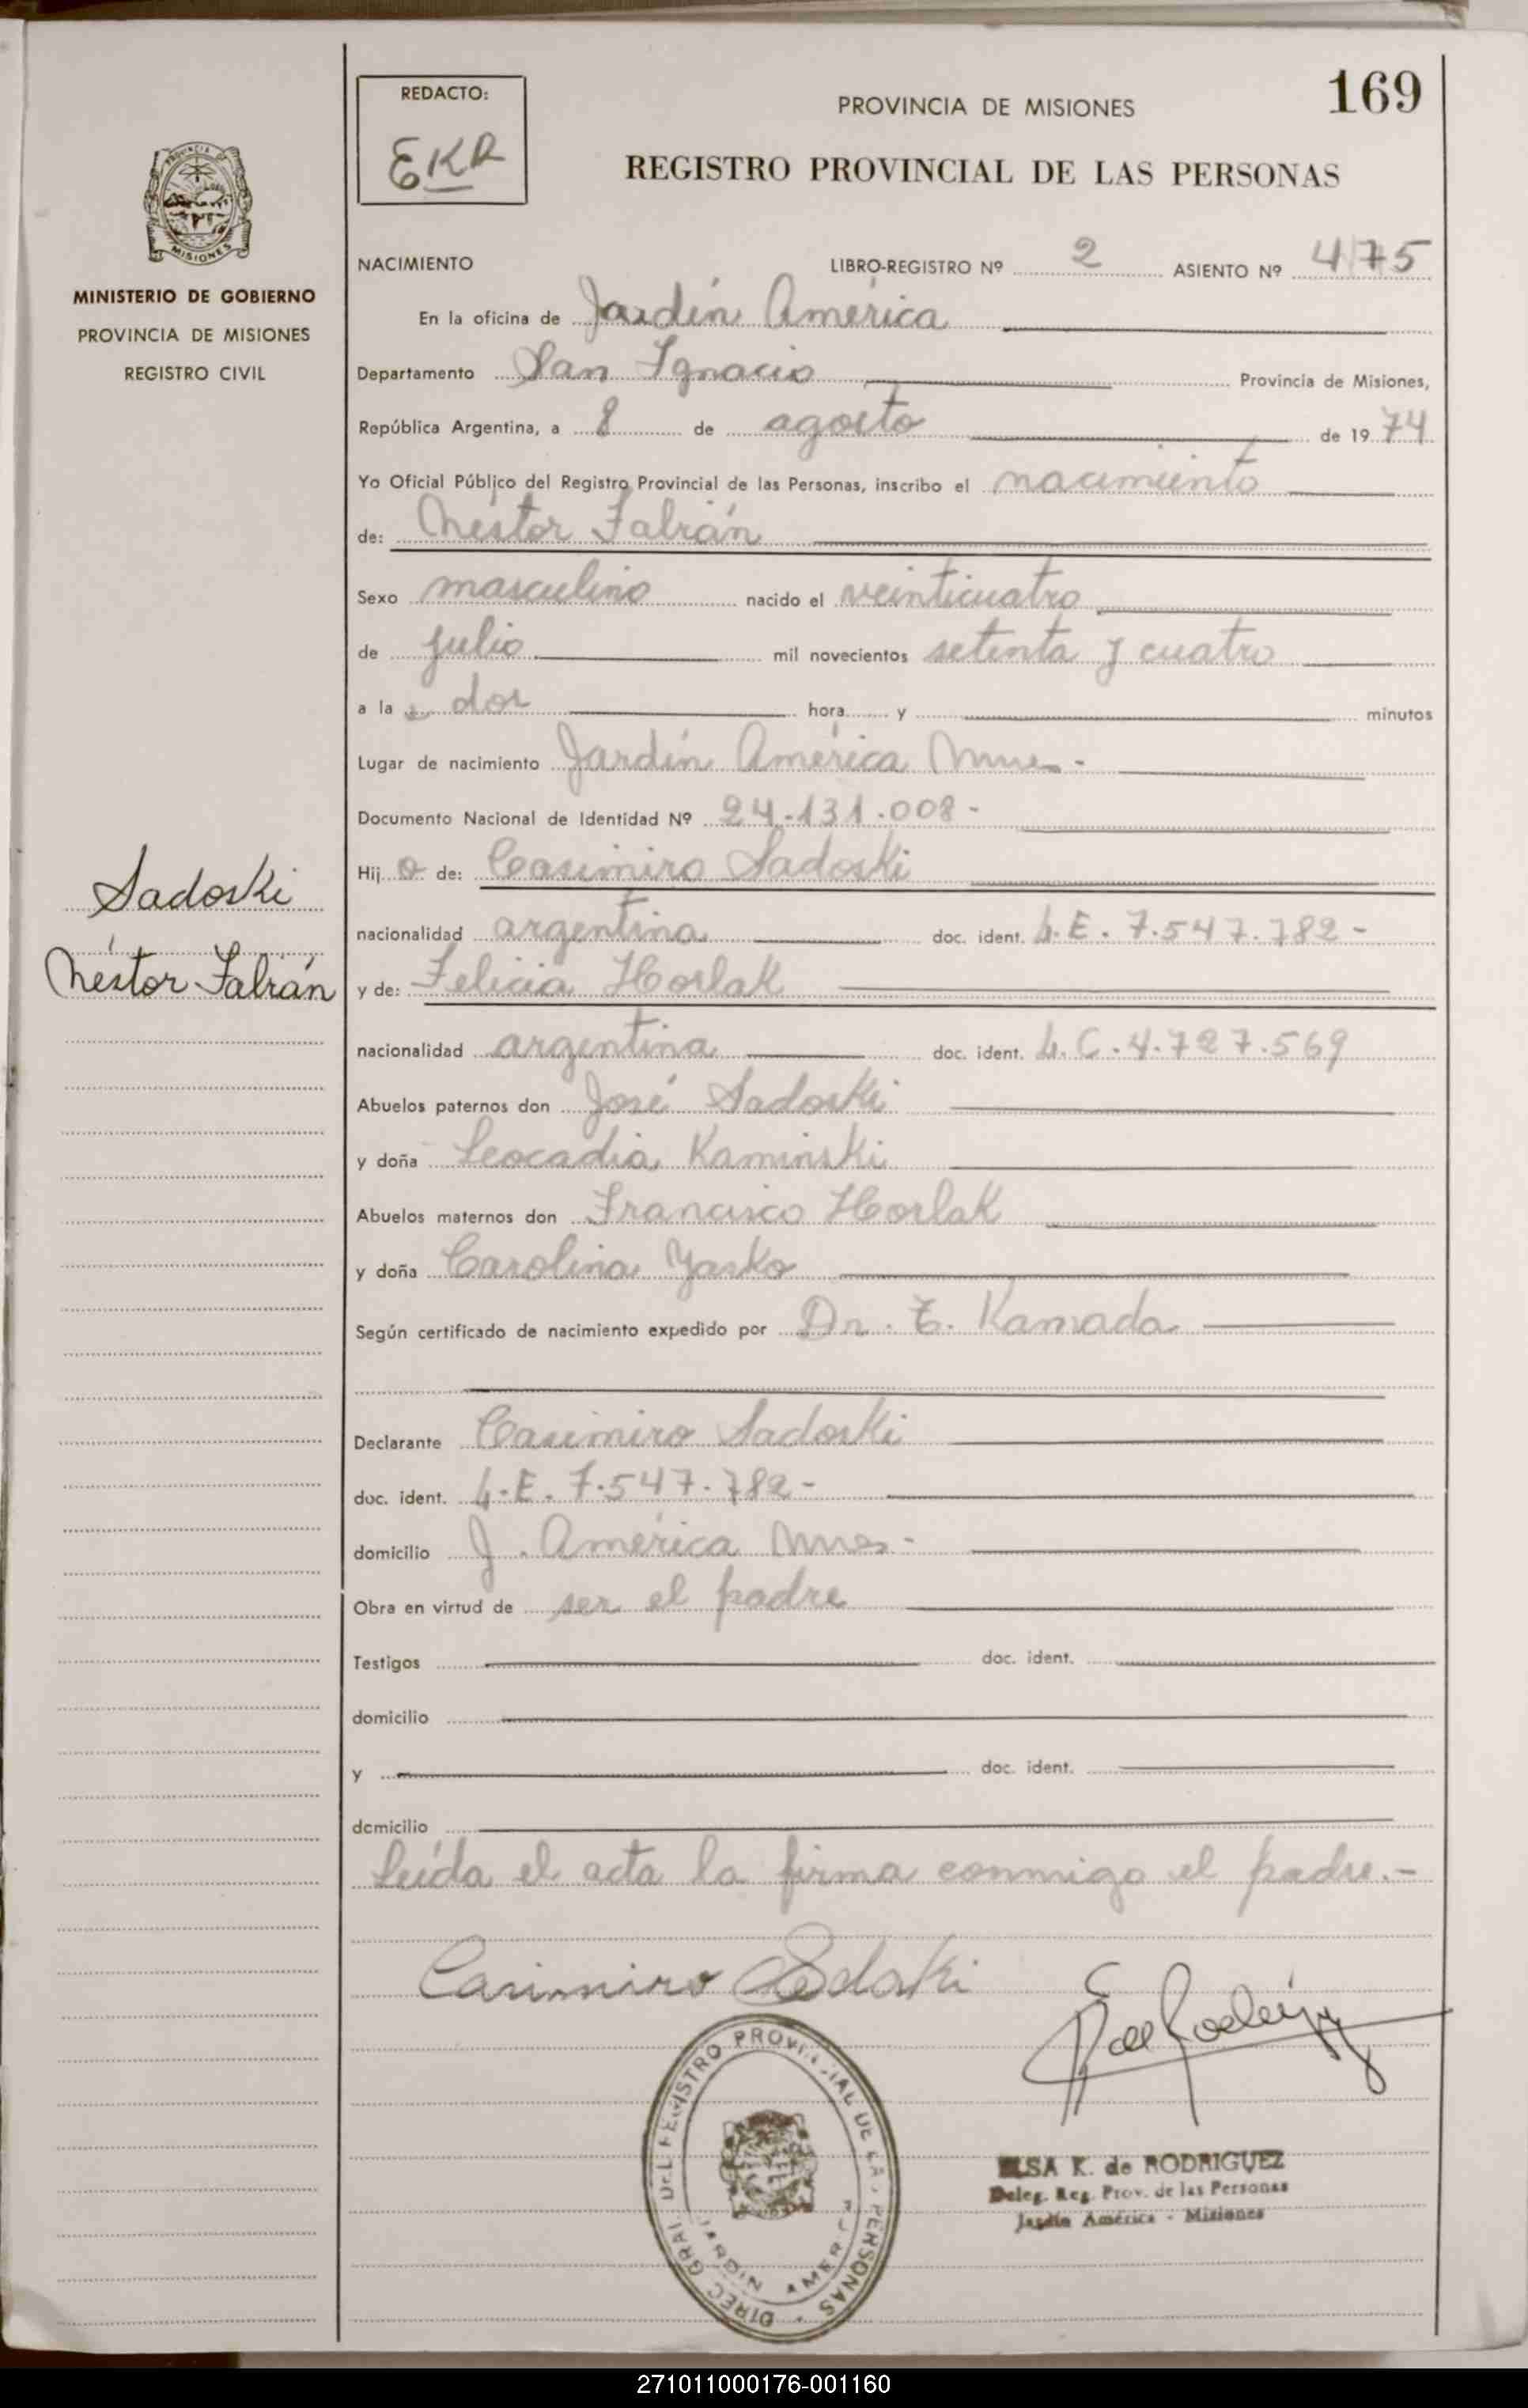 169
REDACTO:
EKR
PROVINCIA DE MISIONES
REGISTRO PROVINCIAL DE LAS PERSONAS
PROVINCIA
MISIONES
MINISTERIO DE GOBIERNO
PROVINCIA DE MISIONES
REGISTRO CIVIL
NACIMIENTO LIBRO-REGISTRO Nº 2 ASIENTO Nº 475
En la oficina de Jardín América
Departamento San Ignacio Provincia de Misiones,
República Argentina, a 8 de agosto de 1974
Yo Oficial Público del Registro Provincial de las Personas, inscribo el nacimiento
de: Néstor Fabián
Sexo masculino nacido el veinticuatro
de julio mil novecientos setenta y cuatro
a la s dos hora y minutos
Lugar de nacimiento Jardín América Mnes.-
Documento Nacional de Identidad Nº 24.131.008-
Hijo de: Casimiro Sadoski
nacionalidad argentina doc. ident. L.E. 7.547.782-
y de: Felicia Horlak
nacionalidad argentina doc. ident. L.C. 4.727.569
Abuelos paternos don José Sadoski
y doña Leocadia Kaminski
Abuelos maternos don Francisco Horlak
y doña Carolina Yasko
Según certificado de nacimiento expedido por Dr. E. Kamada
Declarante Casimiro Sadoski
doc. ident. L.E. 7.547.782-
domicilio J. América Mnes-
Obra en virtud de ser el padre
Testigos doc. ident.
domicilio
y doc. ident.
domicilio
Leída el acta la firma conmigo el padre.-
Sadoski
Néstor Fabián
Casimiro Sadoski
DIREC. GRAL. DEL REGISTRO PROVINCIAL DE LAS PERSONAS
JARDIN AMERICA
ELSA K. de RODRIGUEZ
Deleg. Reg. Prov. de las Personas
Jardín América - Misiones
271011000176-001160